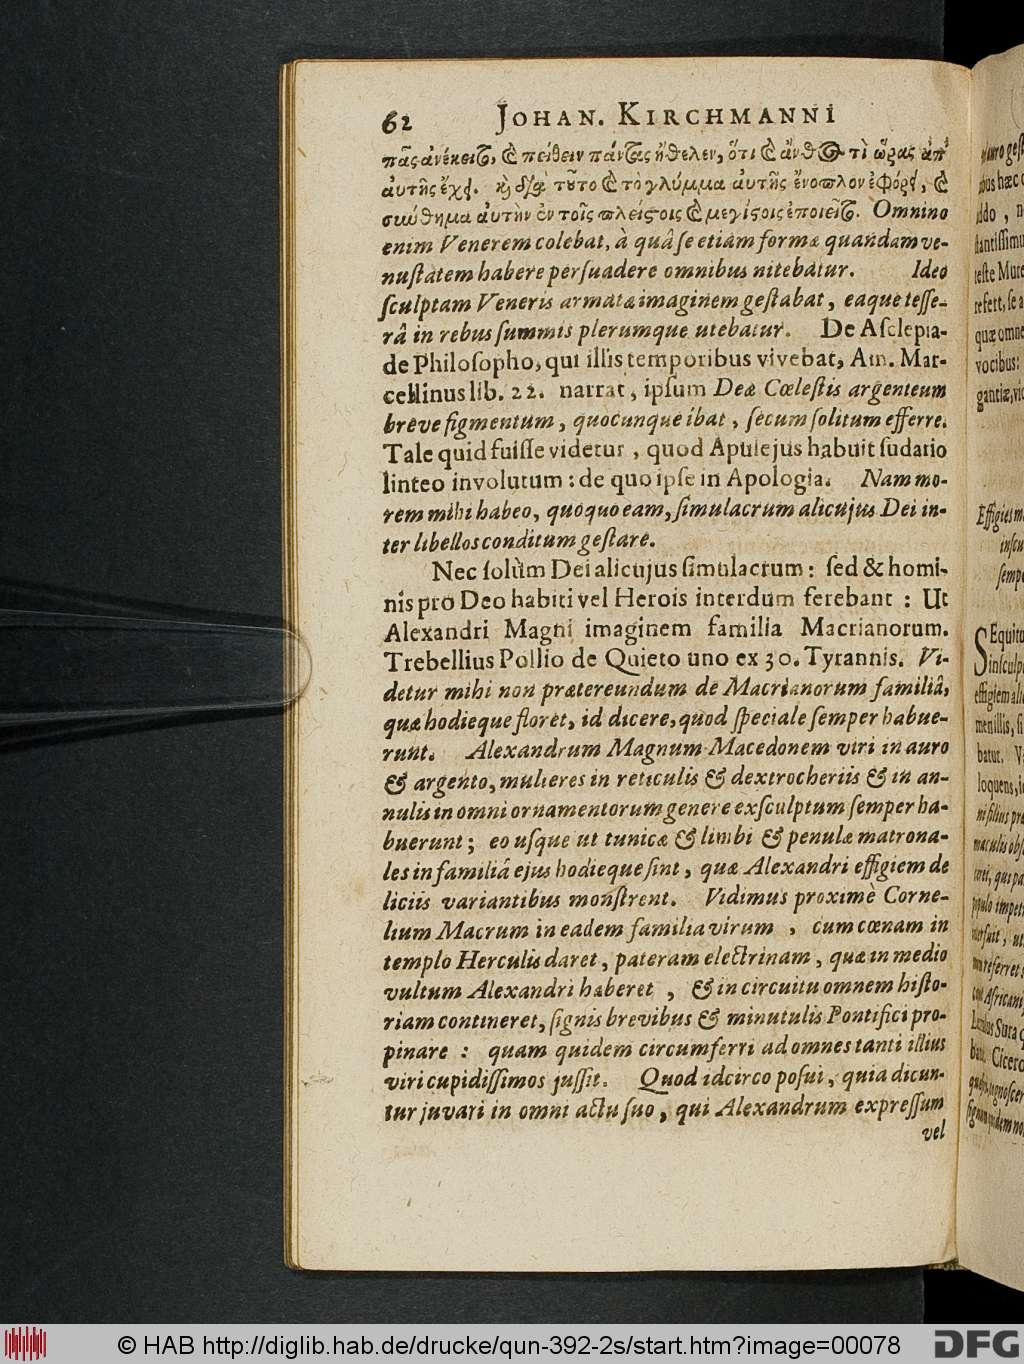 62 JOHAN. KIRCHMANNI
πᾶς ἀνέκειτο, καὶ πείθειν πάντας ἤθελεν, ὅτι καὶ ἄνθος τὶ ὥρας ἀπ᾽
αὐτῆς ἔχει. καὶ διὰ τοῦτο καὶ τὸ γλύμμα αὐτῆς ἔνοπλον ἐφόρει, καὶ
σύνθημα αὐτὴν ἐν τοῖς πλείστοις καὶ μεγίστοις ἐποιεῖτο. Omnino
enim Venerem colebat, à quâ ſe etiam formæ quandam ve-
nuſtatem habere perſuadere omnibus nitebatur. Ideo
ſculptam Veneris armatæ imaginem geſtabat, eaque teſſe-
râ in rebus ſummis plerumque utebatur. De Aſclepia-
de Philoſopho, qui illis temporibus vivebat, Am. Mar-
cellinus lib. 22. narrat, ipſum Deæ Cœleſtis argenteum
breve figmentum, quocunque ibat, ſecum ſolitum efferre.
Tale quid fuiſſe videtur, quod Apulejus habuit ſudario
linteo involutum: de quo ipſe in Apologia. Nam mo-
rem mihi habeo, quoquo eam, ſimulacrum alicujus Dei in-
ter libellos conditum geſtare.
Nec ſolùm Dei alicujus ſimulacrum: ſed & homi-
nis pro Deo habiti vel Herois interdum ferebant: Ut
Alexandri Magni imaginem familia Macrianorum.
Trebellius Pollio de Quieto uno ex 30. Tyrannis. Vi-
detur mihi non prætereundum de Macrianorum familiâ,
quæ hodieque floret, id dicere, quod ſpeciale ſemper habue-
runt. Alexandrum Magnum Macedonem viri in auro
& argento, mulieres in reticulis & dextrocheriis & in an-
nulis in omni ornamentorum genere exſculptum ſemper ha-
buerunt; eo uſque ut tunicæ & limbi & penulæ matrona-
les in familiâ ejus hodieque ſint, quæ Alexandri effigiem de
liciis variantibus monſtrent. Vidimus proximè Corne-
lium Macrum in eadem familia virum, cum cœnam in
templo Herculis daret, pateram electrinam, quæ in medio
vultum Alexandri haberet, & in circuitu omnem hiſto-
riam contineret, ſignis brevibus & minutulis Pontifici pro-
pinare: quam quidem circumferri ad omnes tanti illius
viri cupidiſſimos juſſit. Quod idcirco poſui, quia dicun-
tur juvari in omni actu ſuo, qui Alexandrum expreſſum
vel
© HAB http://diglib.hab.de/drucke/qun-392-2s/start.htm?image=00078
DFG